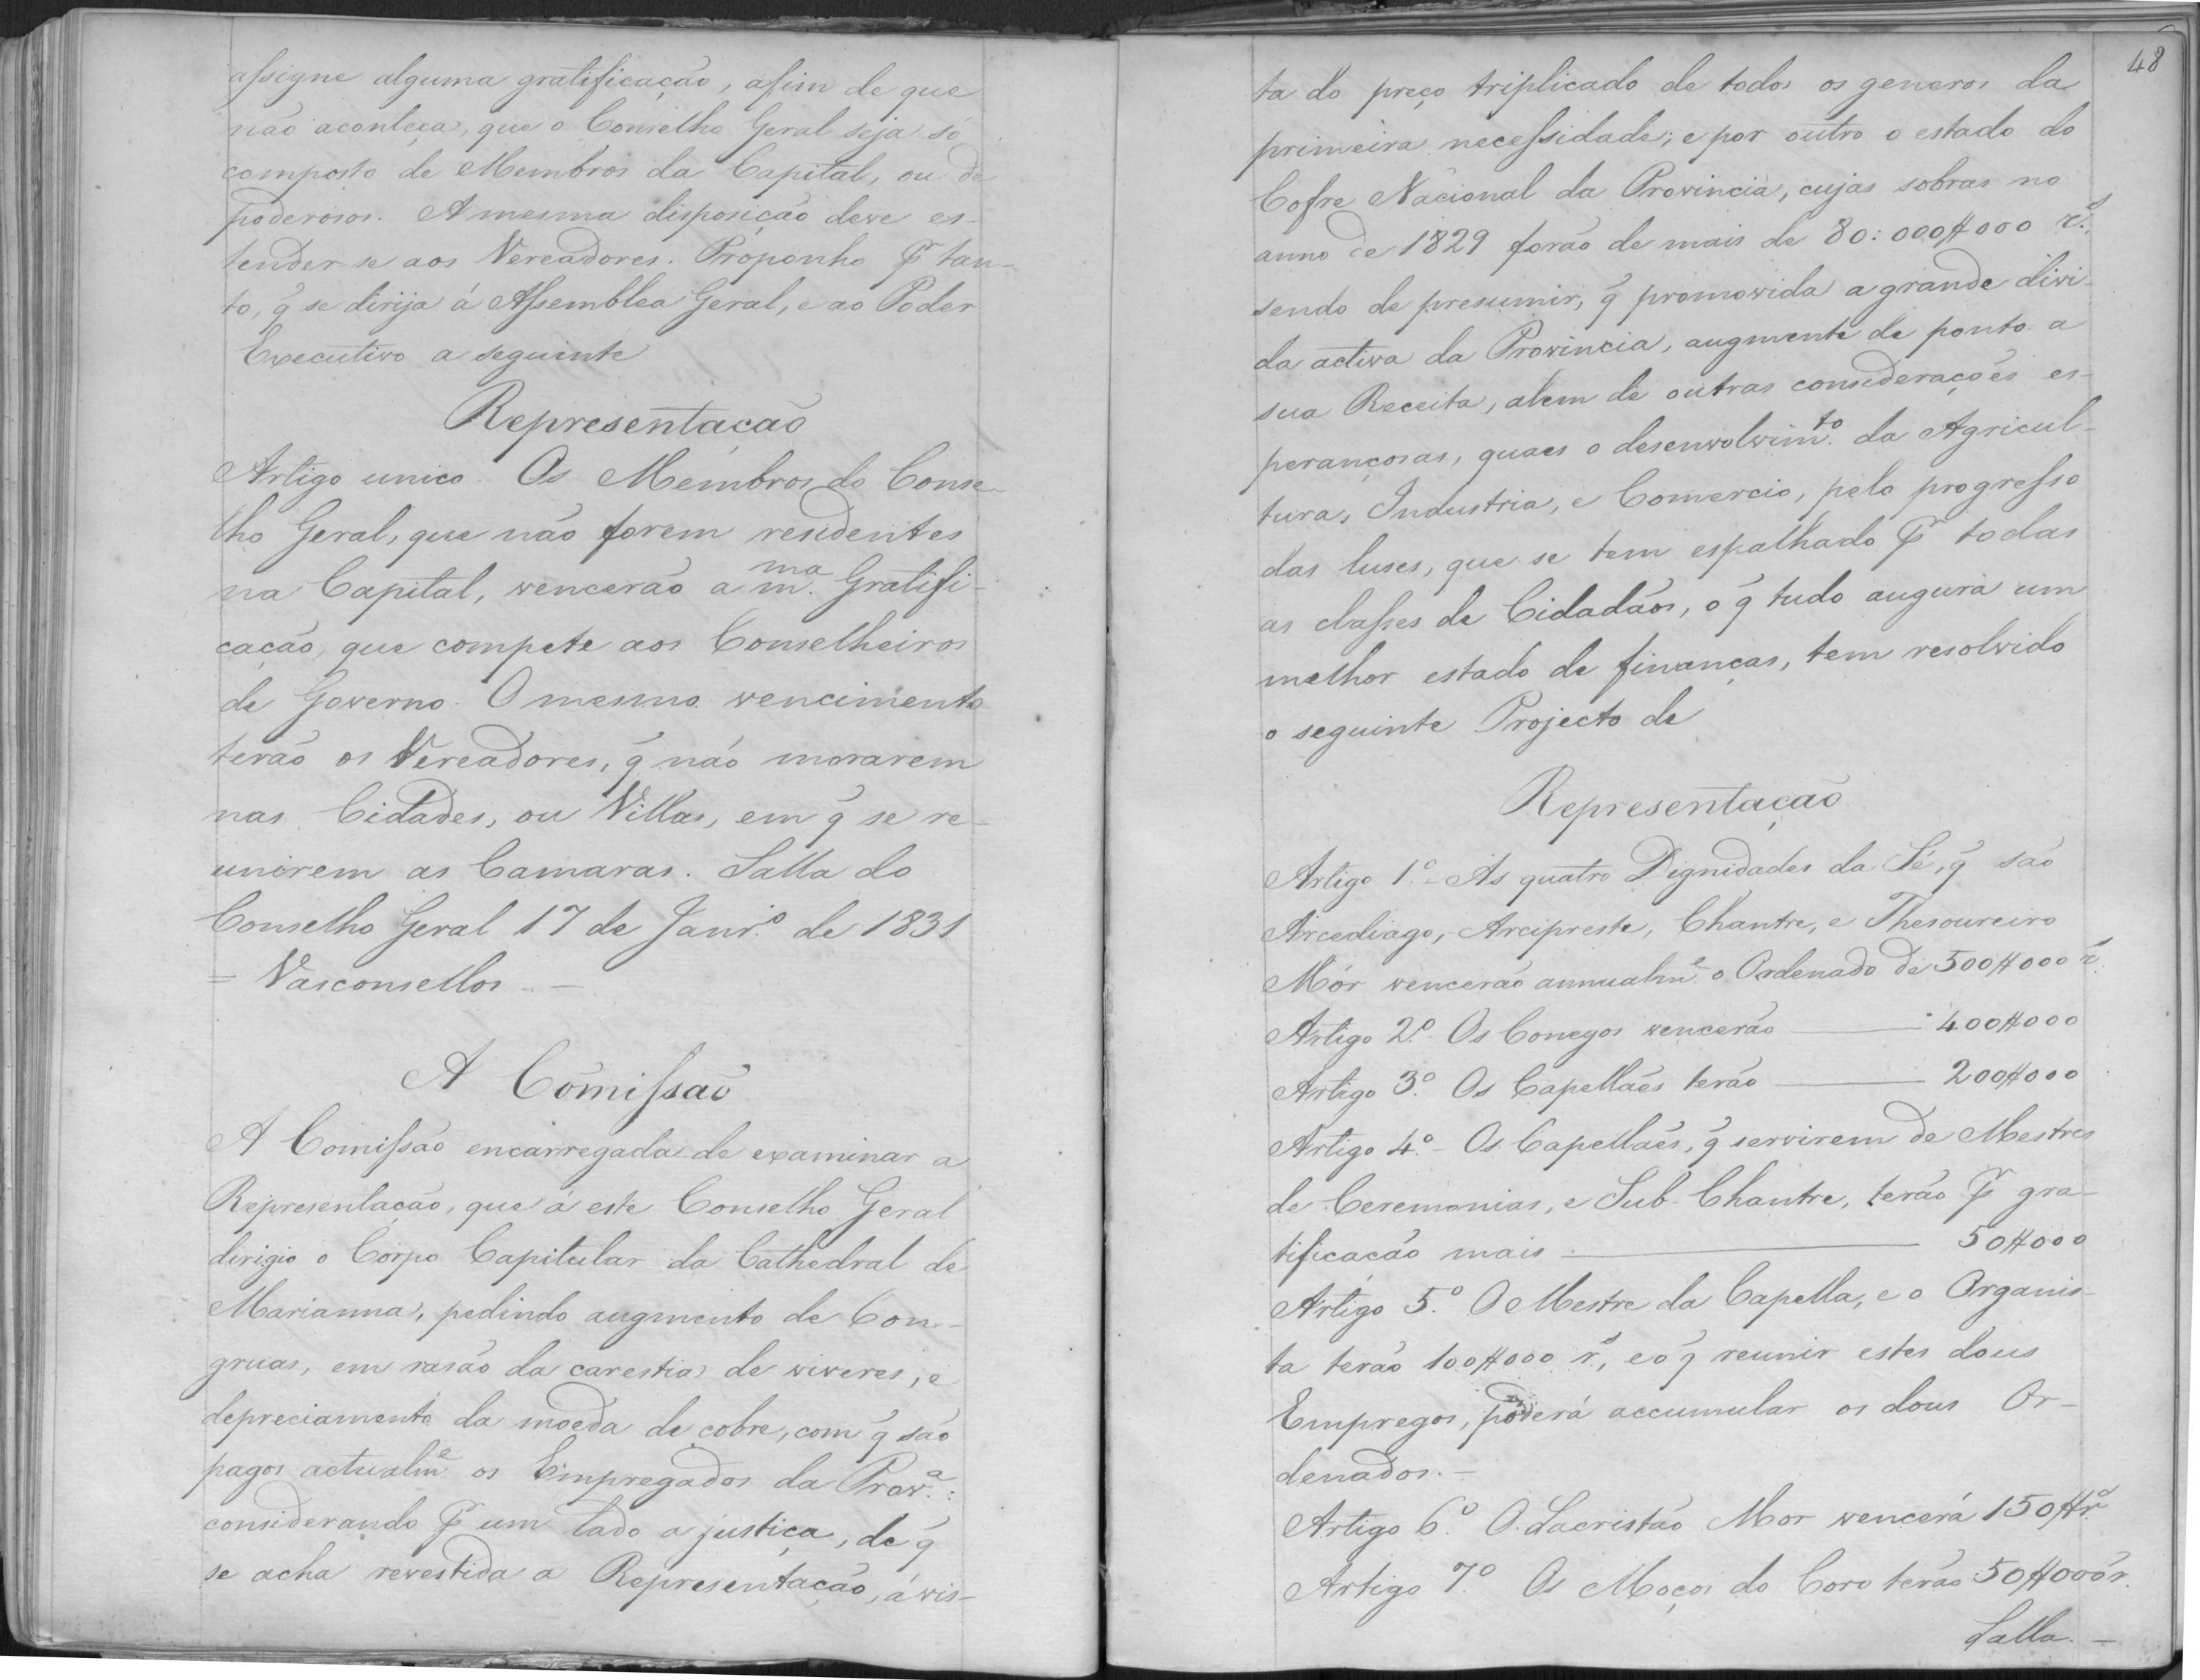 assigne alguma gratificação, afim de que
não aconteça, que o Conselho Geral seja só
composto de Membros da Capital, ou de
poderosos. A mesma disposição deve es-
tender-se aos Vereadores. Proponho pr tan-
to, q̃ se dirija á Assemblea Geral, e ao Poder
Executivo a seguinte
Representação
Artigo unico. Os Membros do Conse-
lho Geral, que não forem residentes
na Capital, vencerão a m.ma Gratifi-
cação, que compete aos Conselheiros
de Governo. O mesmo vencimento
terão os Vereadores, q̃ não morarem
nas Cidades, ou Villas, em q̃ se re-
unirem as Camaras. Salla do
Conselho Geral 17 de Janr.º de 1831
= Vasconsellos -
A Cõmissão
A Comissão encarregada de examinar a
Representação, que á este Conselho Geral
dirigio o Corpo Capitular da Cathedral de
Marianna, pedindo augmento de Con-
gruas, em rasão da carestia de viveres, e
depreciamento da moeda de cobre, com q̃ são
pagos actualm.e os Empregados da Prov.ª:
considerando pr um lado a justiça, de q̃
se acha revestida a Representação, á vis-
48
ta do preço triplicado de todos os generos da
primeira necessidade; e por outro o estado do
Cofre Nacional da Provincia, cujas sobras no
anno de 1829 forão de mais de 80:000$000 r.s,
sendo de presumir, q̃ promovida a grande divi-
da activa da Provincia, augmente de ponto a
sua Receita, alem de outras considerações es-
perançosas, quaes o desenvolvim.to da Agricul-
tura, Industria, e Comercio, pelo progresso
das luses, que se tem espalhado pr todas
as classes de Cidadãos, o q̃ tudo augura um
melhor estado de finanças, tem resolvido
o seguinte Projecto de
Representação
Artigo 1.º - As quatro Dignidades da Sé, q̃ são
Arcediago, Arcipreste, Chantre, e Thesoureiro
Mór vencerão annualm.e o Ordenado de 500$000 r.s
Artigo 2.º Os Conegos vencerão — 400$000
Artigo 3.º Os Capellães terão — 200$000
Artigo 4.º - Os Capellães, q̃ servirem de Mestres
de Ceremonias, e Sub-Chantre, terão pr gra-
tificação mais — 50$000
Artigo 5.º O Mestre da Capella, e o Organis-
ta terão 100$000 r.s, e o q̃ reunir estes dous
Empregos, poderá accumular os dous Or-
denados. -
Artigo 6.º O Sacristão Mor vencerá 150$r.s
Artigo 7.º Os Moços do Coro terão 50$000 r.s
Salla -